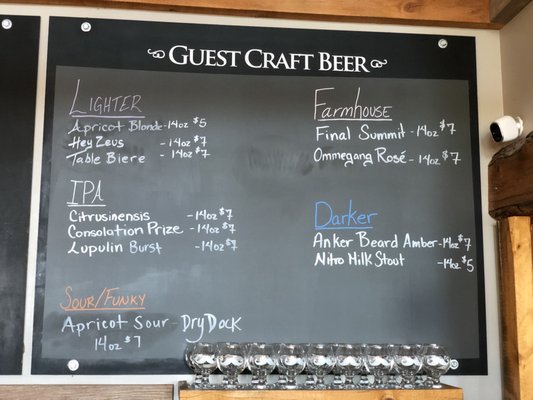 GUEST CRAFT BEER
LIGHTER
Apricot Blonde - 14oz $5
Hey Zeus - 14oz $7
Table Biere - 14oz $7
IPA
Citrusinensis - 14oz $7
Consolation Prize - 14oz $7
Lupulin Burst - 14oz $7
SOUR/FUNKY
Apricot Sour - Dry Dock
14oz $7
Farmhouse
Final Summit - 14oz $7
Ommegang Rosé - 14oz $7
Darker
Anker Beard Amber - 14oz $7
Nitro Milk Stout - 14oz $5